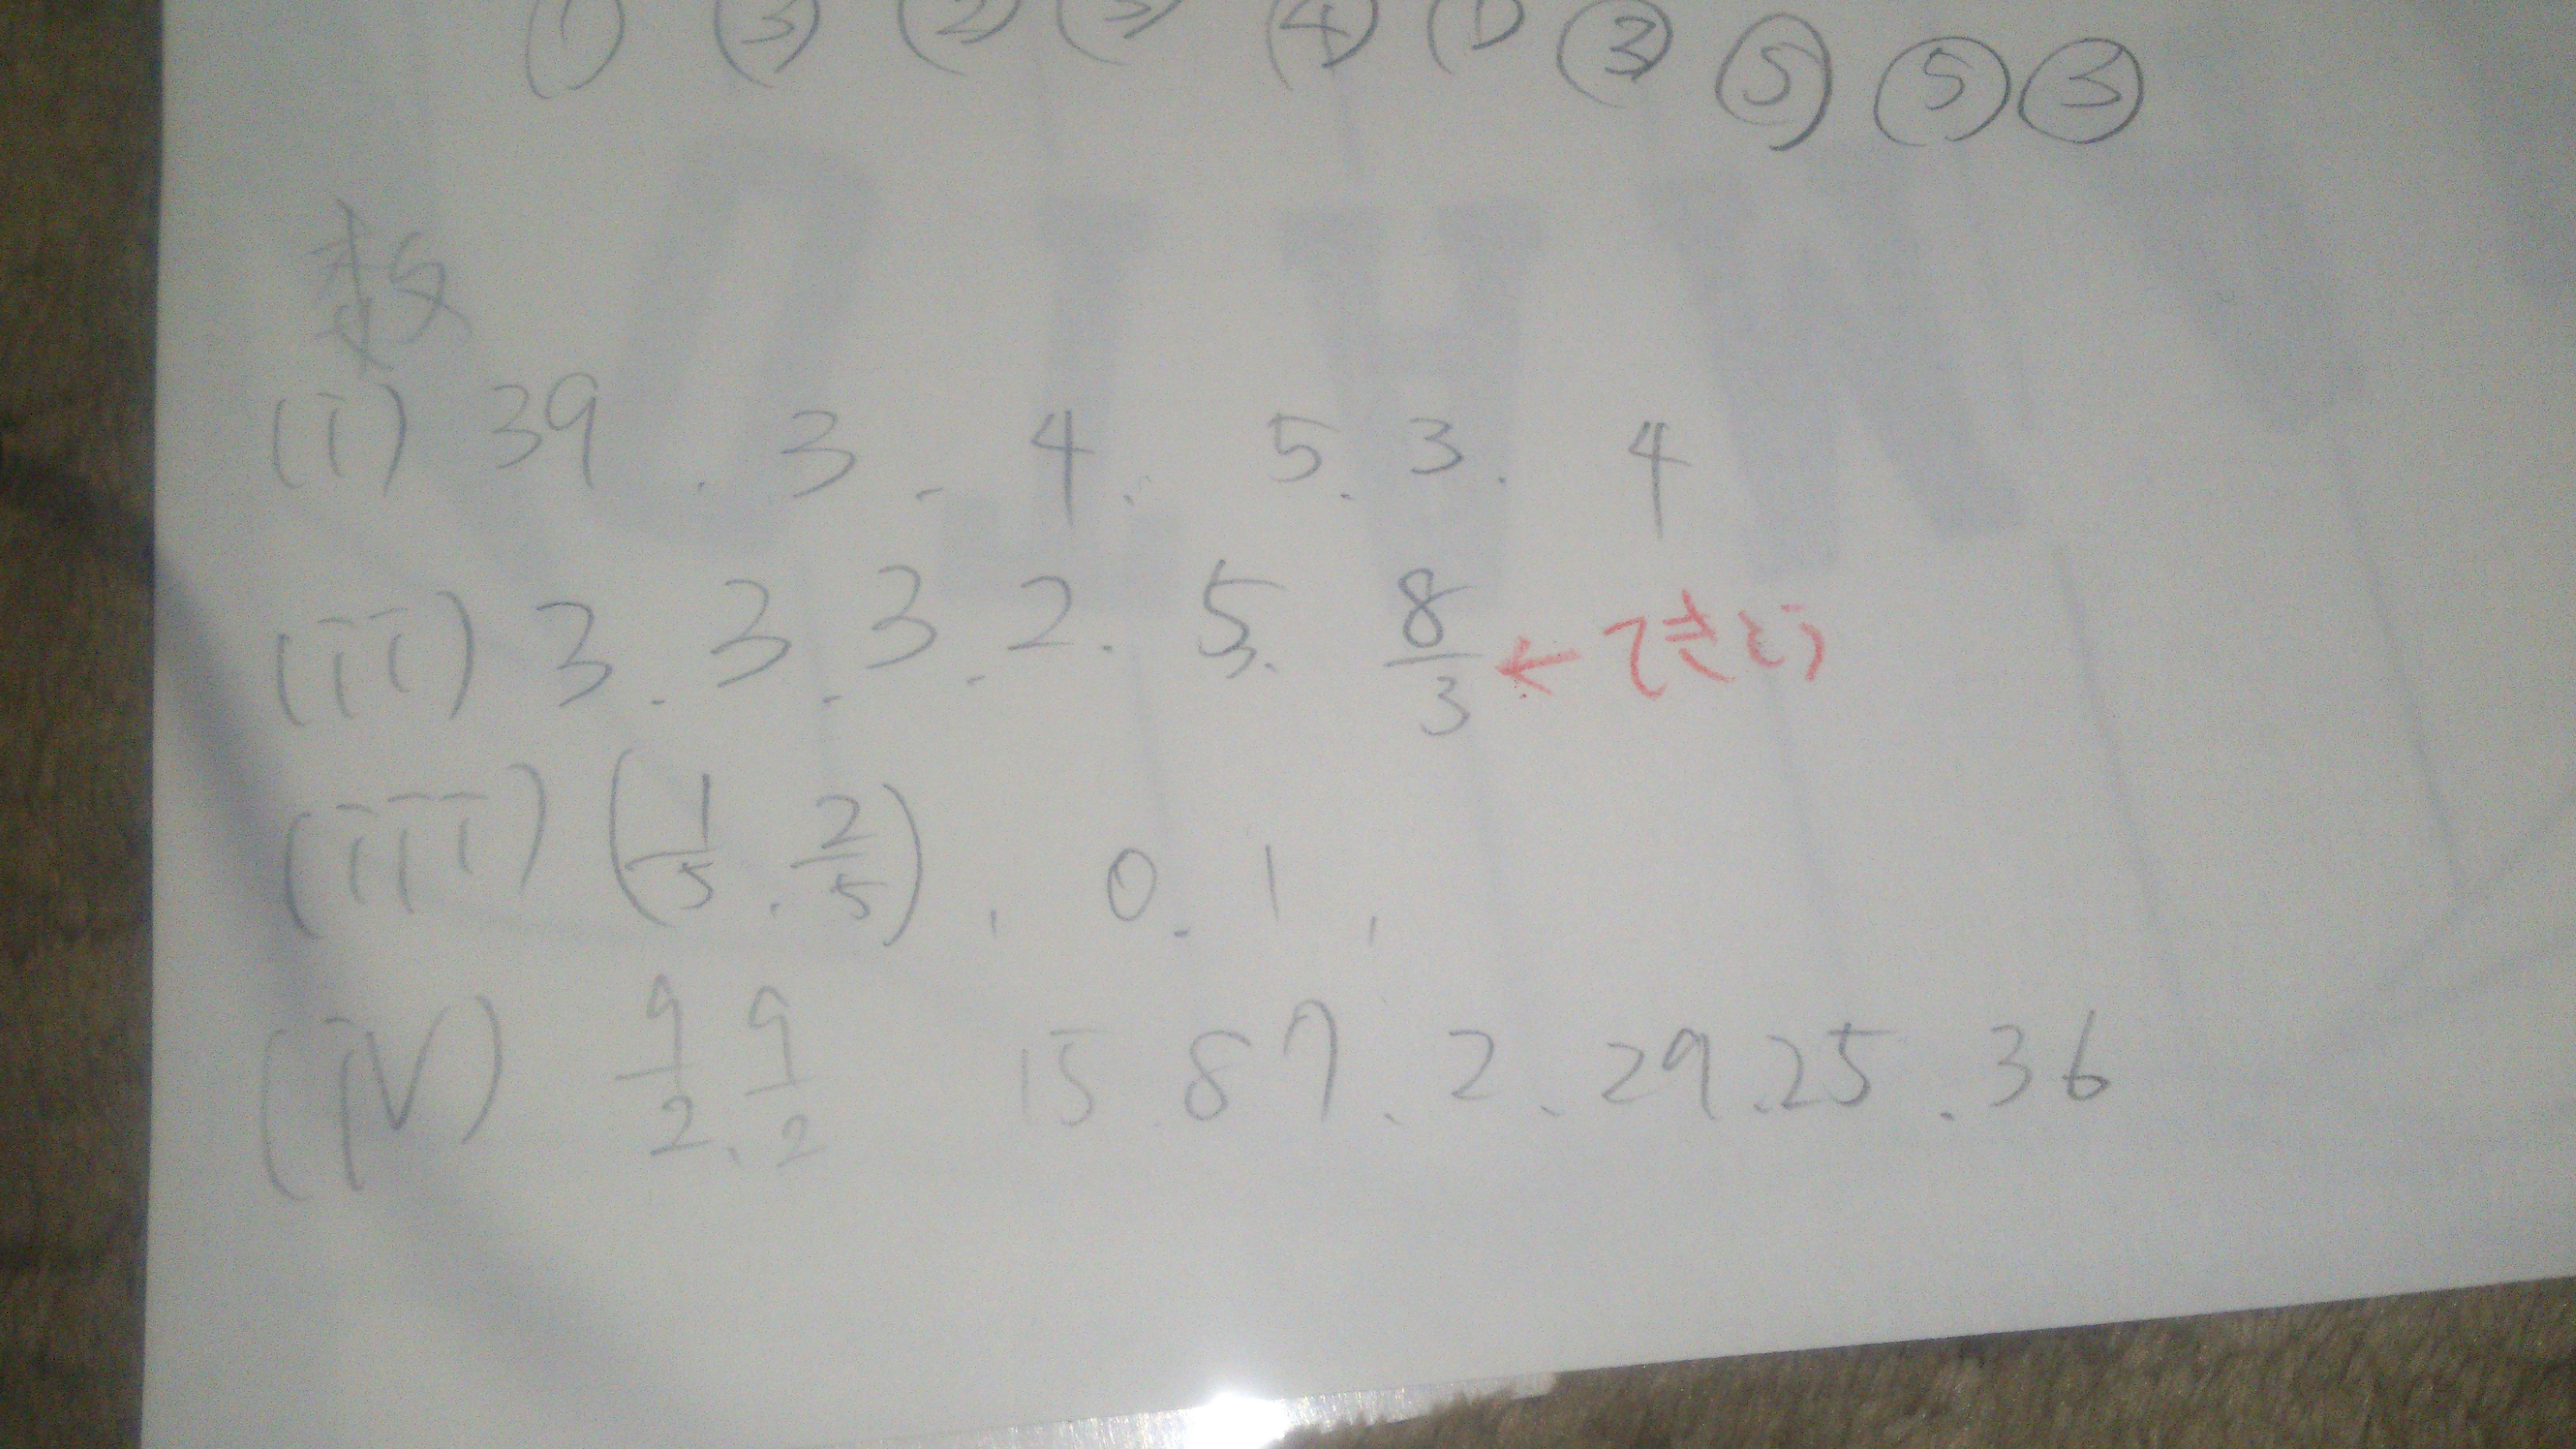 ① ③ ② ④ ① ③ ⑤ ⑤ ③
数
(i) 39 . 3 . 4 . 5 . 3 . 4
(ii) 3 . 3 . 3 . 2 . 5 . 8/3 ← てきとう
(iii) (1/5 . 2/5) , 0 . 1 ,
(iv) 9/2 . 9/2 15 87 . 2 . 29 . 25 . 36